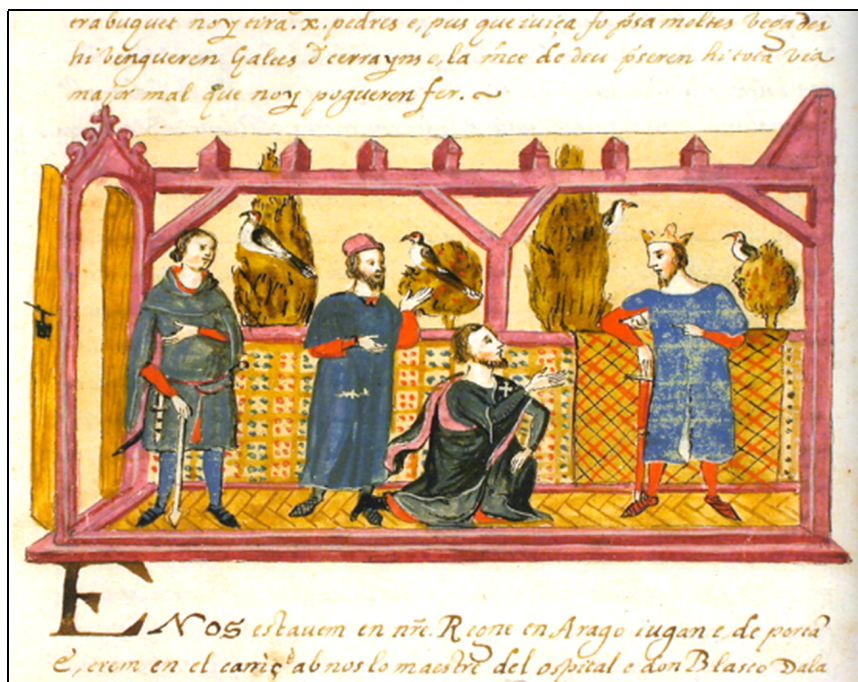 trabuquet noy tira .x. pedres e, pus que iuiça fo psa moltes vegades
hi vengueren Galees d cerrayns e, la mce de deu pseren hi tota via
major mal que noy pogueren fer. ~
E Nos estauem en nre. Regne en Arago iugan e, de porta
E, erem en el ab nos lo maestre del ospital e don Blasco Dala